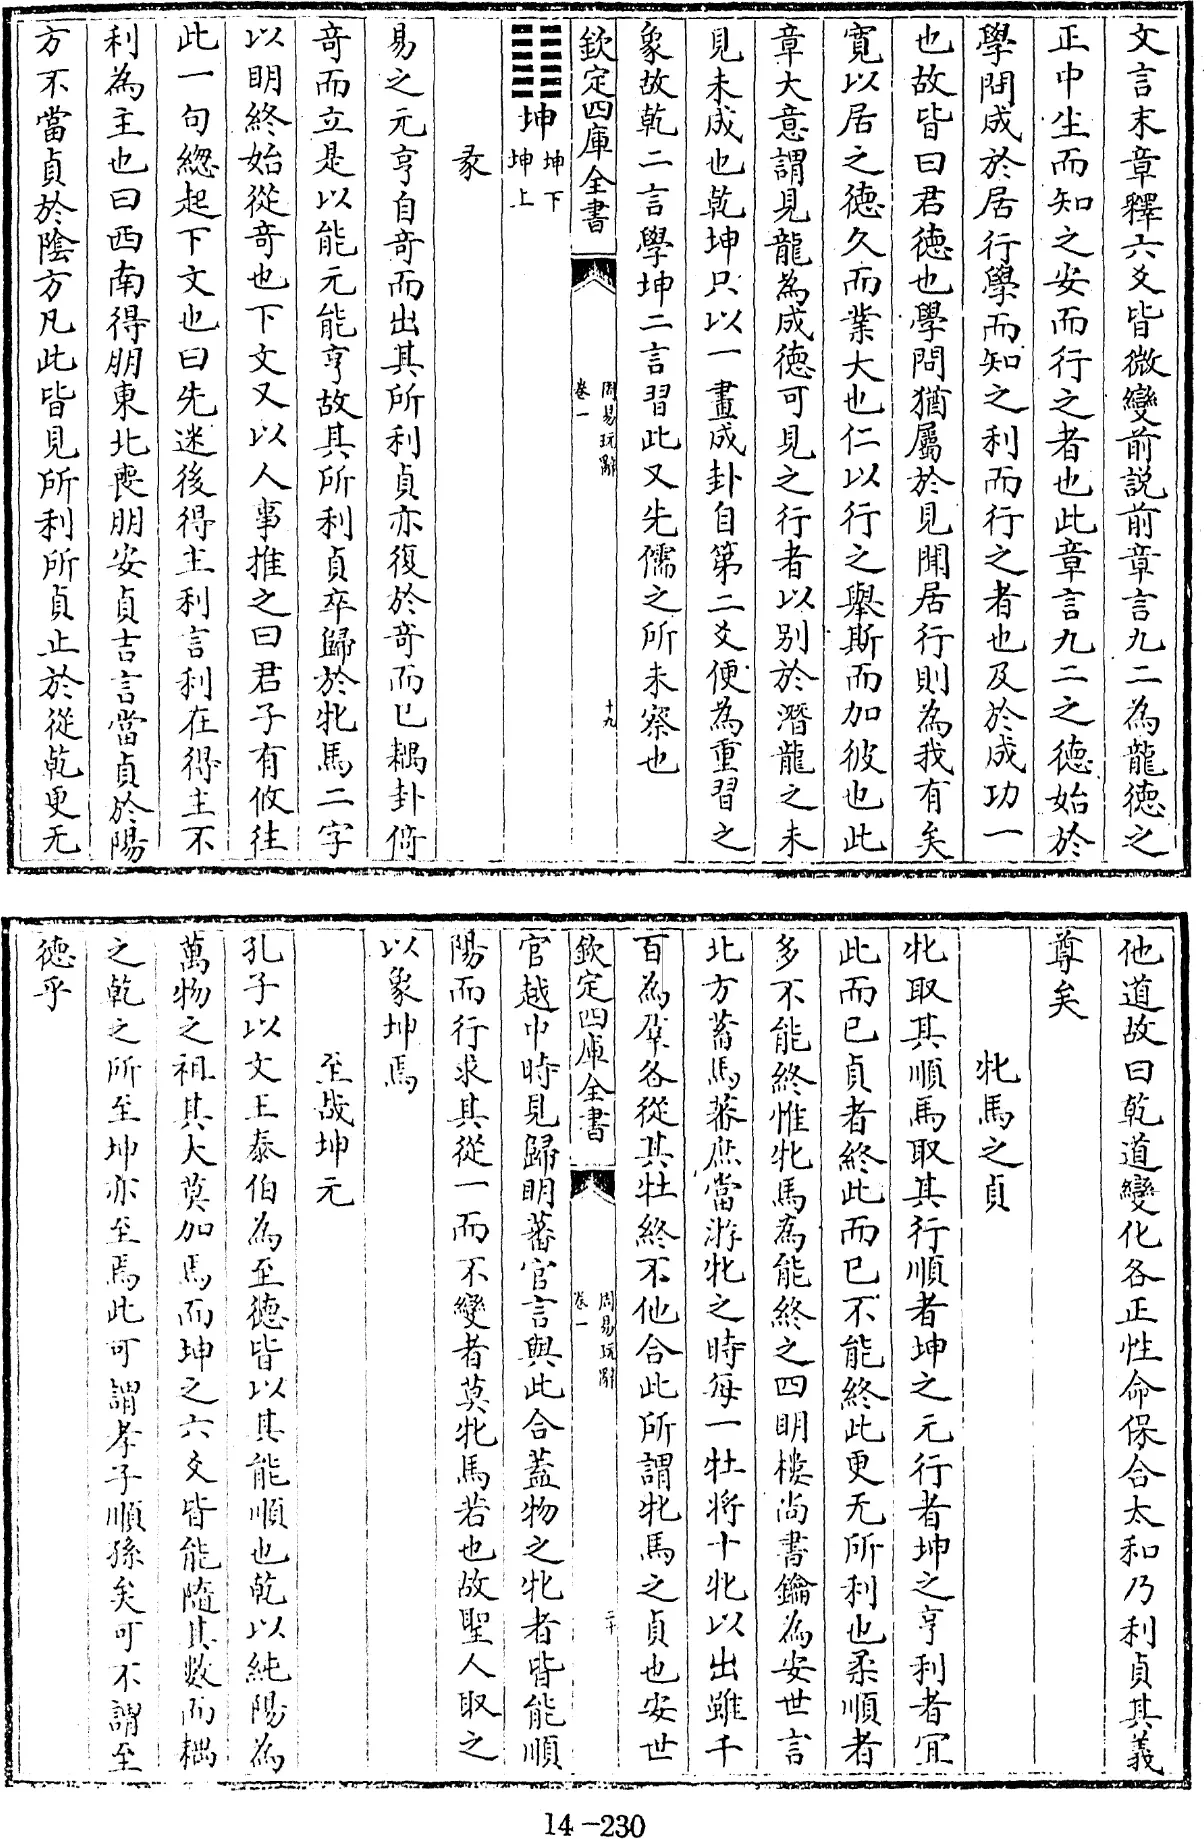 文言末章釋六爻皆微變前説前章言九二為龍徳之
正中生而知之安而行之者也此章言九二之徳始於
學問成於居行學而知之利而行之者也及於成功一
也故皆曰君徳也學問猶屬於見聞居行則為我有矣
寛以居之徳久而業大也仁以行之舉斯而加彼也此
章大意謂見龍為成徳可見之行者以别於潛龍之未
見未成也乾坤只以一畫成卦自第二爻便為重習之
象故乾二言學坤二言習此又先儒之所未察也
欽定四庫全書
周易玩辭
卷一
十九
䷁坤
坤下
坤上
彖
易之元亨自奇而出其所利貞亦復於奇而已耦卦偝
奇而立是以能元能亨故其所利貞卒歸於牝馬二字
以明終始從奇也下文又以人事推之曰君子有攸往
此一句總起下文也曰先迷後得主利言利在得主不
利為主也曰西南得朋東北喪朋安貞吉言當貞於陽
方不當貞於陰方凡此皆見所利所貞止於從乾更无
他道故曰乾道變化各正性命保合太和乃利貞其義
尊矣
牝馬之貞
牝取其順馬取其行順者坤之元行者坤之亨利者宜
此而已貞者終此而已不能終此更无所利也柔順者
多不能終惟牝馬為能終之四明樓尚書鑰為安世言
北方蓄馬蕃庶當游牝之時每一牡將十牝以出雖千
百為羣各從其牡終不他合此所謂牝馬之貞也安世
欽定四庫全書
周易玩辭
卷一
二十
官越中時見歸明蕃官言與此合蓋物之牝者皆能順
陽而行求其從一而不變者莫牝馬若也故聖人取之
以象坤焉
至哉坤元
孔子以文王泰伯為至徳皆以其能順也乾以純陽為
萬物之祖其大莫加焉而坤之六爻皆能隨其數而耦
之乾之所至坤亦至焉此可謂孝子順孫矣可不謂至
徳乎
14-230